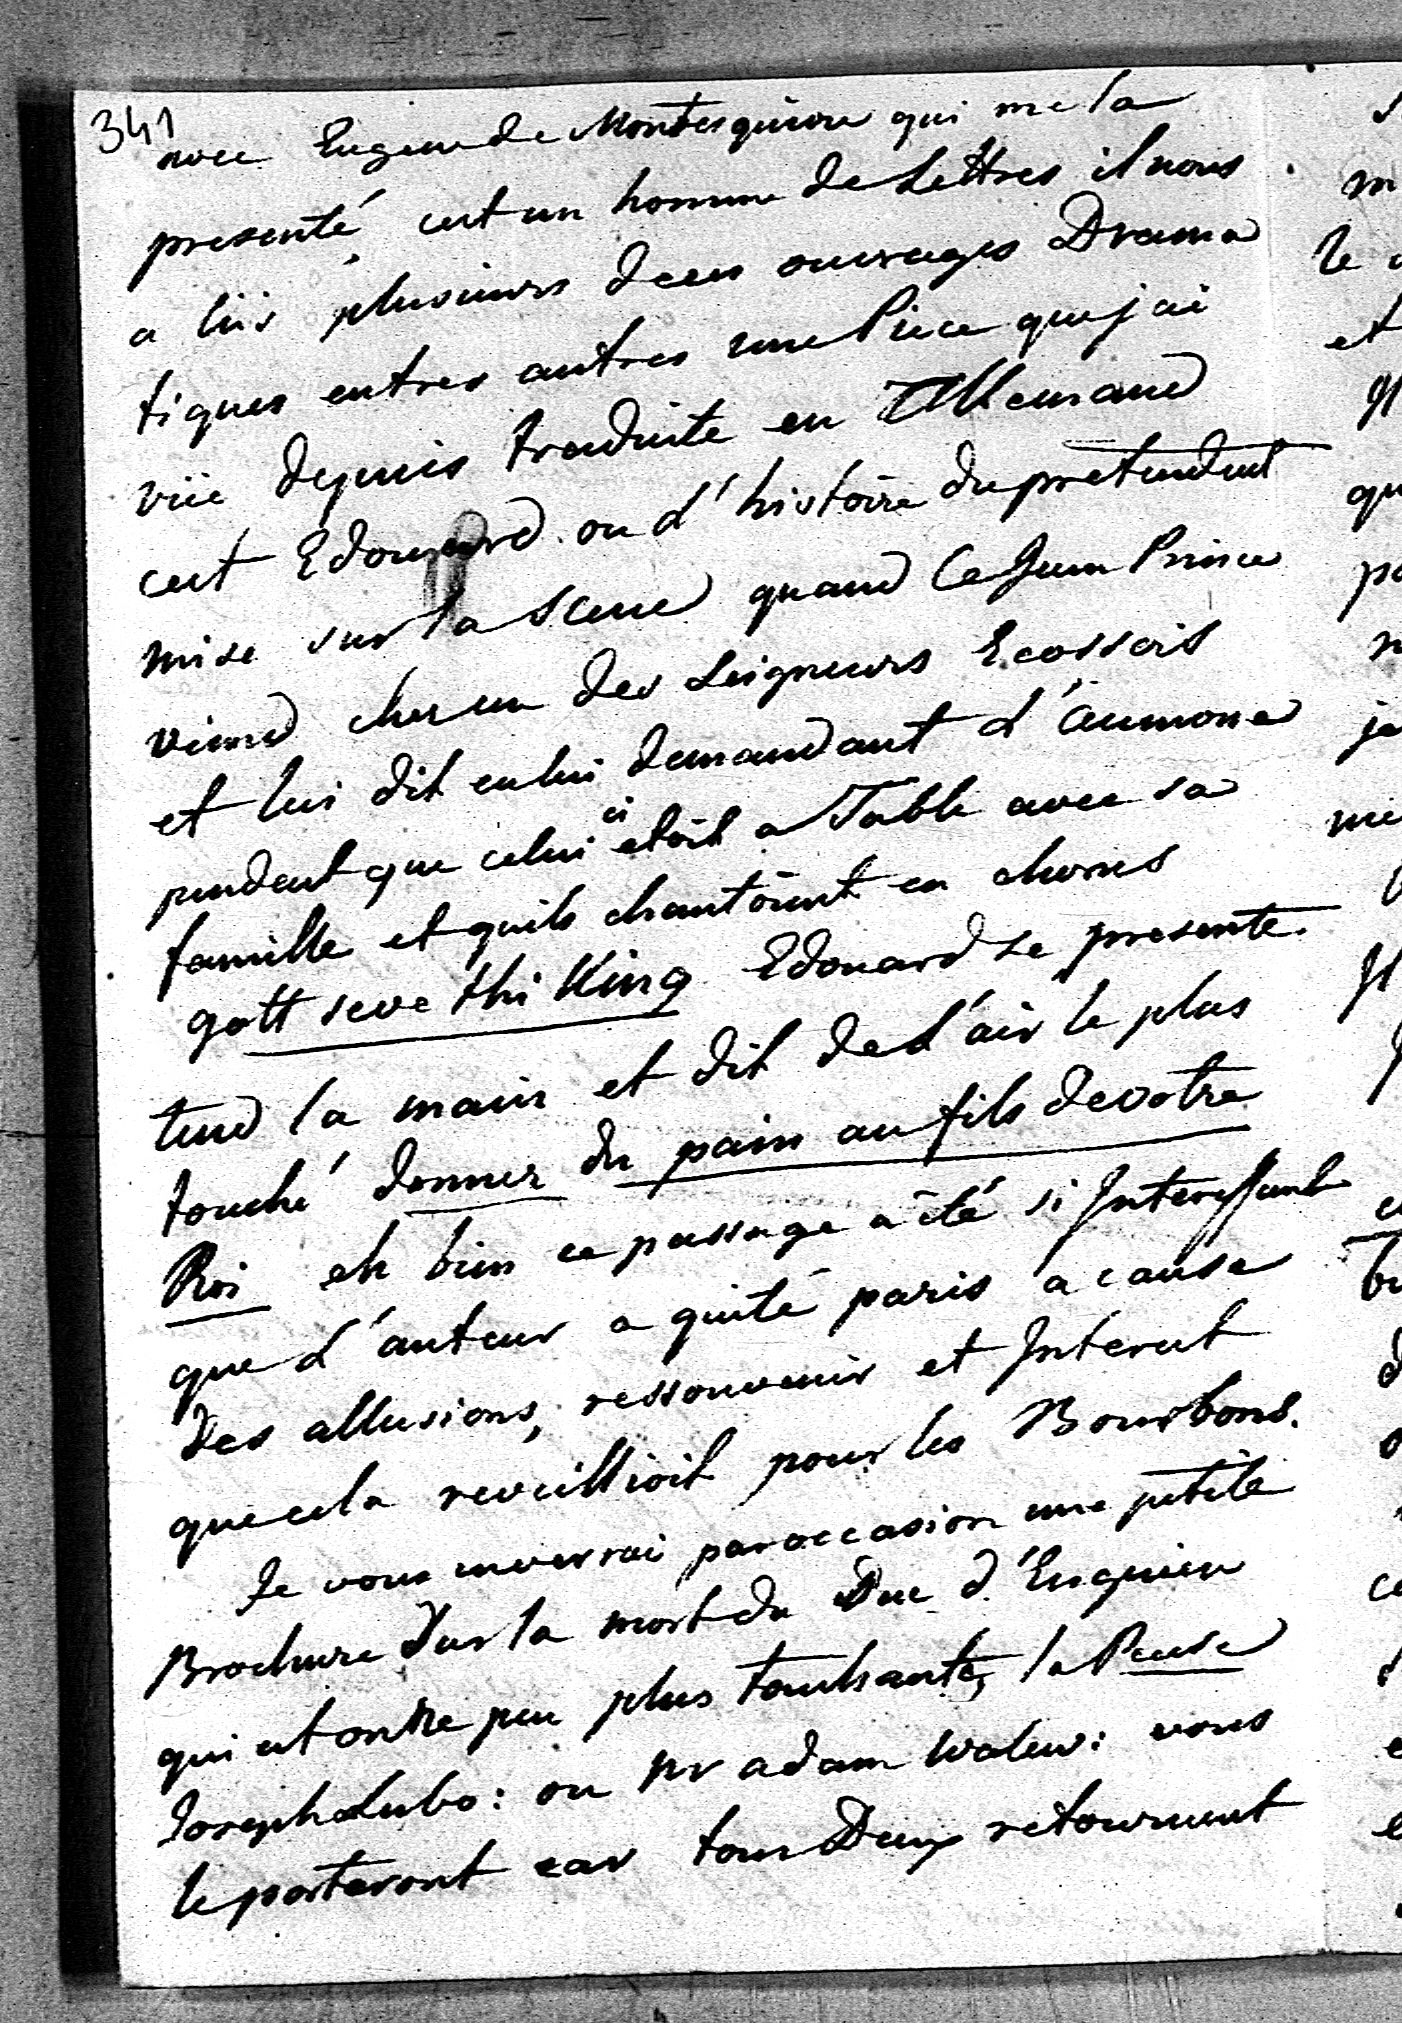 341
avec Eugene de Montesquiou qui me la
presenté cest un homme de Lettres il nous
a lüs plusieurs de ces ouvrages Drama
tiques entres autres une Piece que jai
vüe depuis traduite en Allemand
cest Edouard ou d'histoire du pretendent
mise sur la Scene quand Ce Jeun Prince
viend chez un des Seigneurs Ecossois
et lui dit en lui demandant d'aumone
pendent que celui ci etoit a Table avec sa
famille et quils chantoient en chorus
gott seve thi King Edouard se presente
tend la main et dit de d'air le plus
touché donner du pain au fils de votre
Roi eh bien ce passage a été si Interessant
que d'auteur a quité paris a cause
des allusions, ressouvenir et Interest
que cela reveillioit pour les Bourbons.
Je vous enverrai par occasion une petite
Brochure Sur la mort du Duc d'Enguien
qui est on ne peu plus touchante,
Joseph Lubo: ou Mr adam Walew: vous
le porteront car tous Deux retournent